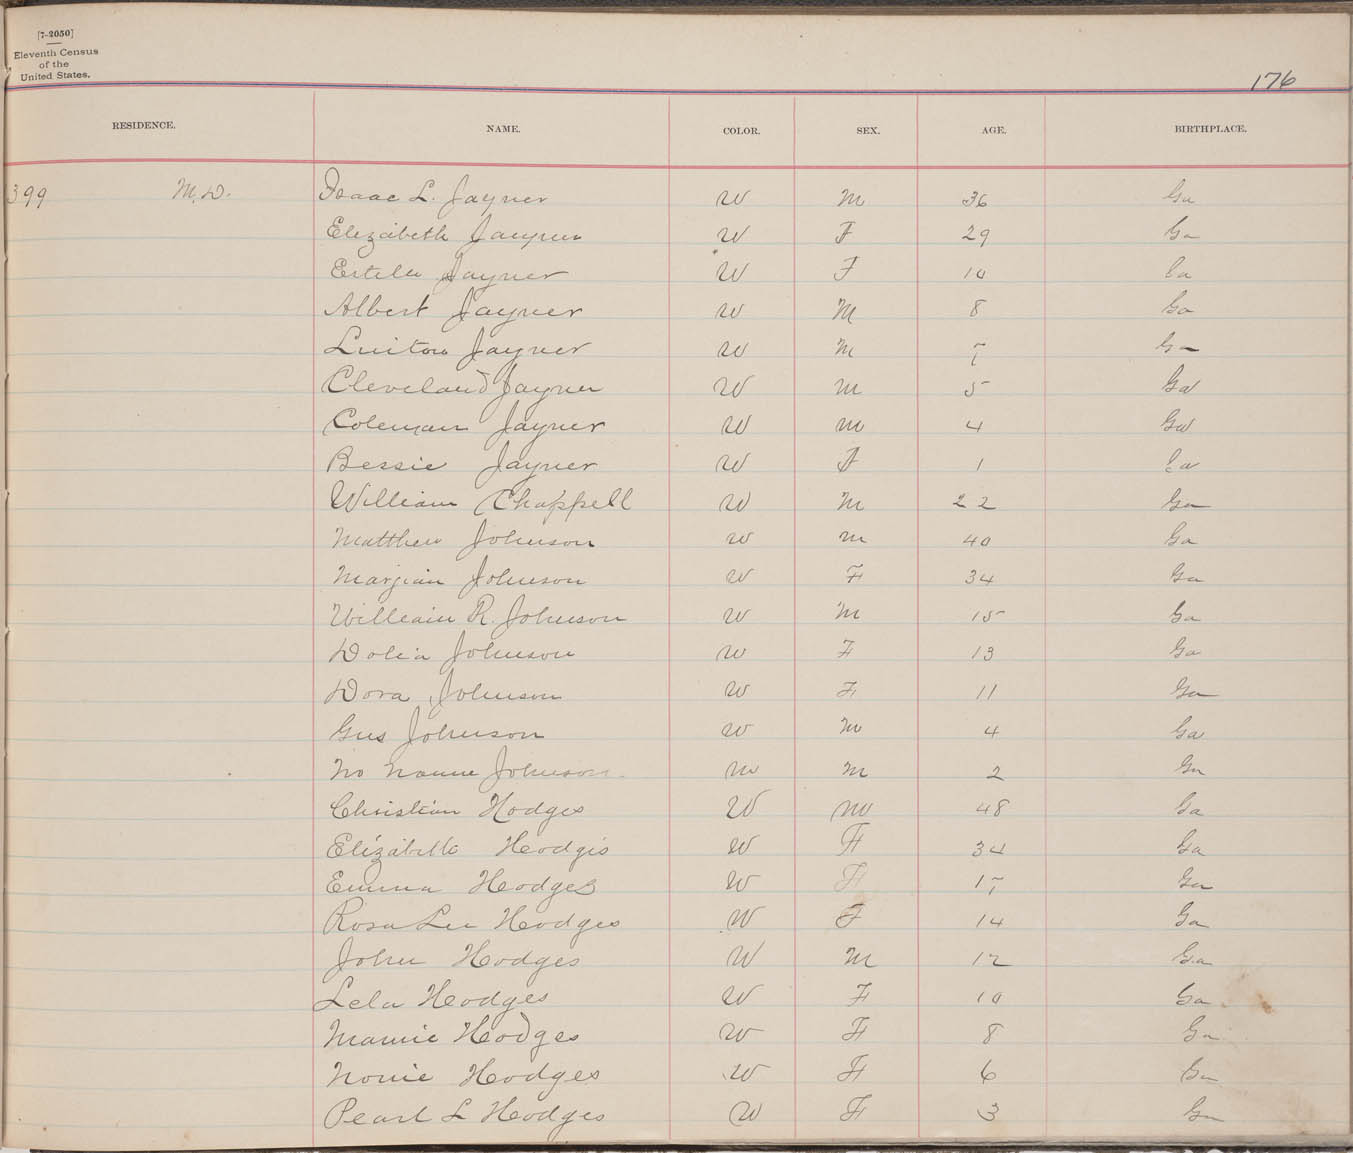 [7-2050]
Eleventh Census
of the
United States.
176
RESIDENCE. NAME. COLOR. SEX. AGE. BIRTHPLACE.
399 M.D. Isaac L. Jayner W M 36 Ga
Elizabeth Jayner W F 29 Ga
Estela Jayner W F 10 Ga
Albert Jayner W M 8 Ga
Jayner W M 7 Ga
Cleveland Jayner W M 5 Ga
Coleman Jayner W M 4 Ga
Bessie Jayner W F 1 Ga
William Chappell W M 22 Ga
Matthew Johnson W M 40 Ga
Marjian Johnson W F 34 Ga
William R. Johnson W M 15 Ga
Dolia Johnson W F 13 Ga
Dora Johnson W F 11 Ga
Gus Johnson W M 4 Ga
No Name Johnson W M 2 Ga
Christian Hodges W M 48 Ga
Elizabeth Hodges W F 34 Ga
Emma Hodges W F 17 Ga
Rosa Lee Hodges W F 14 Ga
John Hodges W M 12 Ga
Lela Hodges W F 10 Ga
Mamie Hodges W F 8 Ga
Nonie Hodges W F 6 Ga
Pearl L Hodges W F 3 Ga